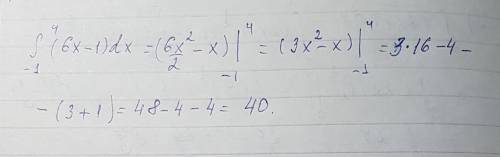 ∫₋₁⁴ (6x-1)dx = (6x²/2 - x)|₋₁⁴ = (3x² - x)|₋₁⁴ = 3·16-4-
-(3+1) = 48-4-4 = 40.